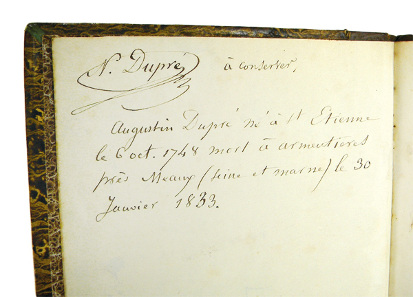 N. Dupré à conserver.
Augustin Dupré né à St Etienne
le 6 oct. 1748 mort à armentieres
près Meaux (seine et marne) le 30
Janvier 1833.